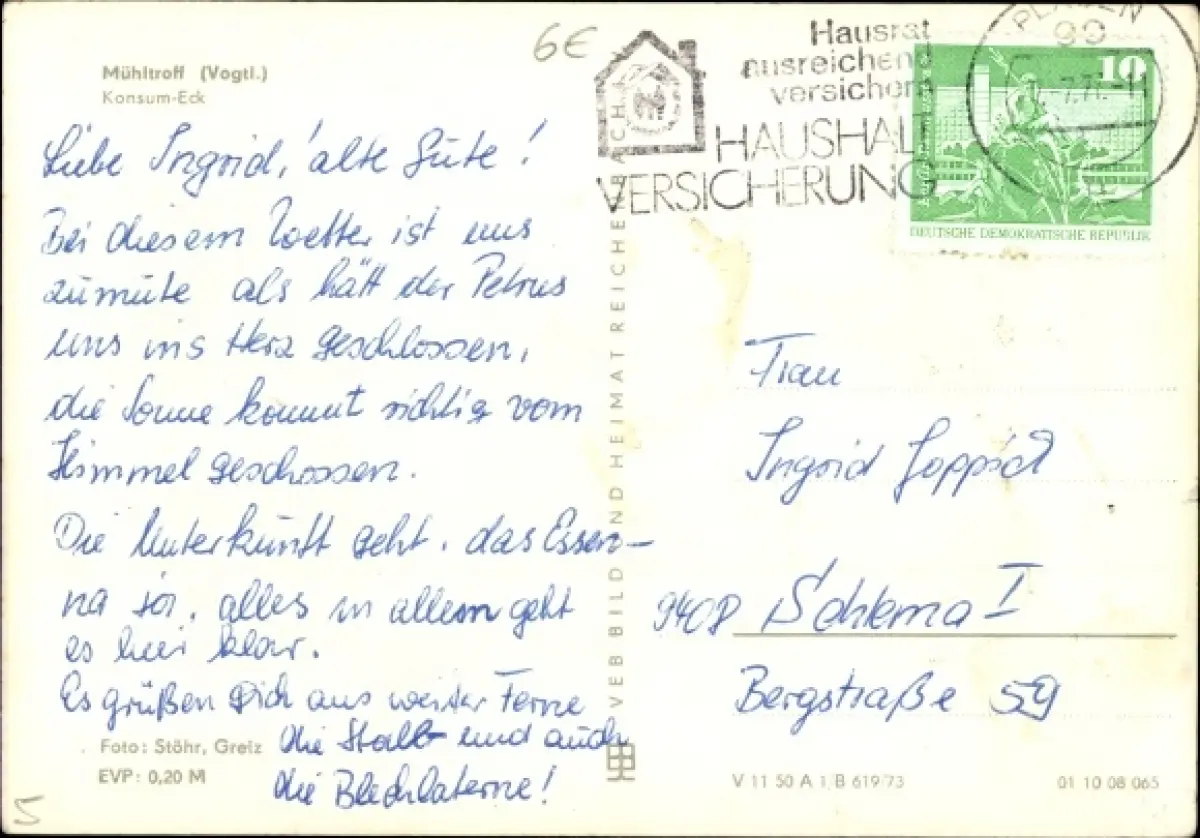 6€
Mühltroff (Vogtl.)
Konsum-Eck
Liebe Ingrid, alte Gute!
Bei diesem Wetter ist uns
zumute als hätt der Petrus
uns ins Herz geschlossen,
die Sonne kommt richtig vom
Himmel geschossen.
Die Unterkunft geht, das Essen-
na ja, alles in allem geht
es hier klar.
Es grüßen Dich aus weiter Ferne
die Stalb und auch
die Blechlaterne!
Foto: Stöhr, Greiz
EVP: 0,20 M
5
VEB BILD UND HEIMAT REICHENBACH
Hausrat
ausreichend
versichern
HAUSHALT
VERSICHERUNG
PLAUEN
99
10
DEUTSCHE DEMOKRATISCHE REPUBLIK
Frau
Ingrid
9408 Schlema I
Bergstraße 59
V 11 50 A 1/B 619/73
01 10 08 065